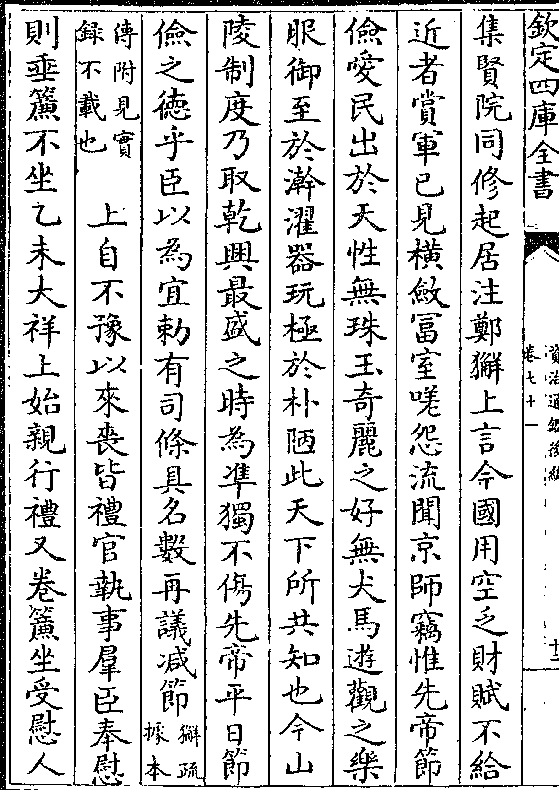 欽定四庫全書
資治通鑑後編
卷七十一
集賢院同修起居注鄭獬上言今國用空乏財賦不給
近者賞軍已見横斂冨室嗟怨流聞京師竊惟先帝節
儉愛民出於天性無珠玉奇麗之好無犬馬遊觀之樂
服御至於澣濯器玩極於朴陋此天下所共知也今山
陵制度乃取乾興最盛之時為凖獨不傷先帝平日節
儉之德乎臣以為宜勅有司條具名數再議减節獬疏據本
傳附見實録不載也 上自不豫以來喪皆禮官執事羣臣奉慰
則垂簾不坐乙未大祥上始親行禮又卷簾坐受慰人